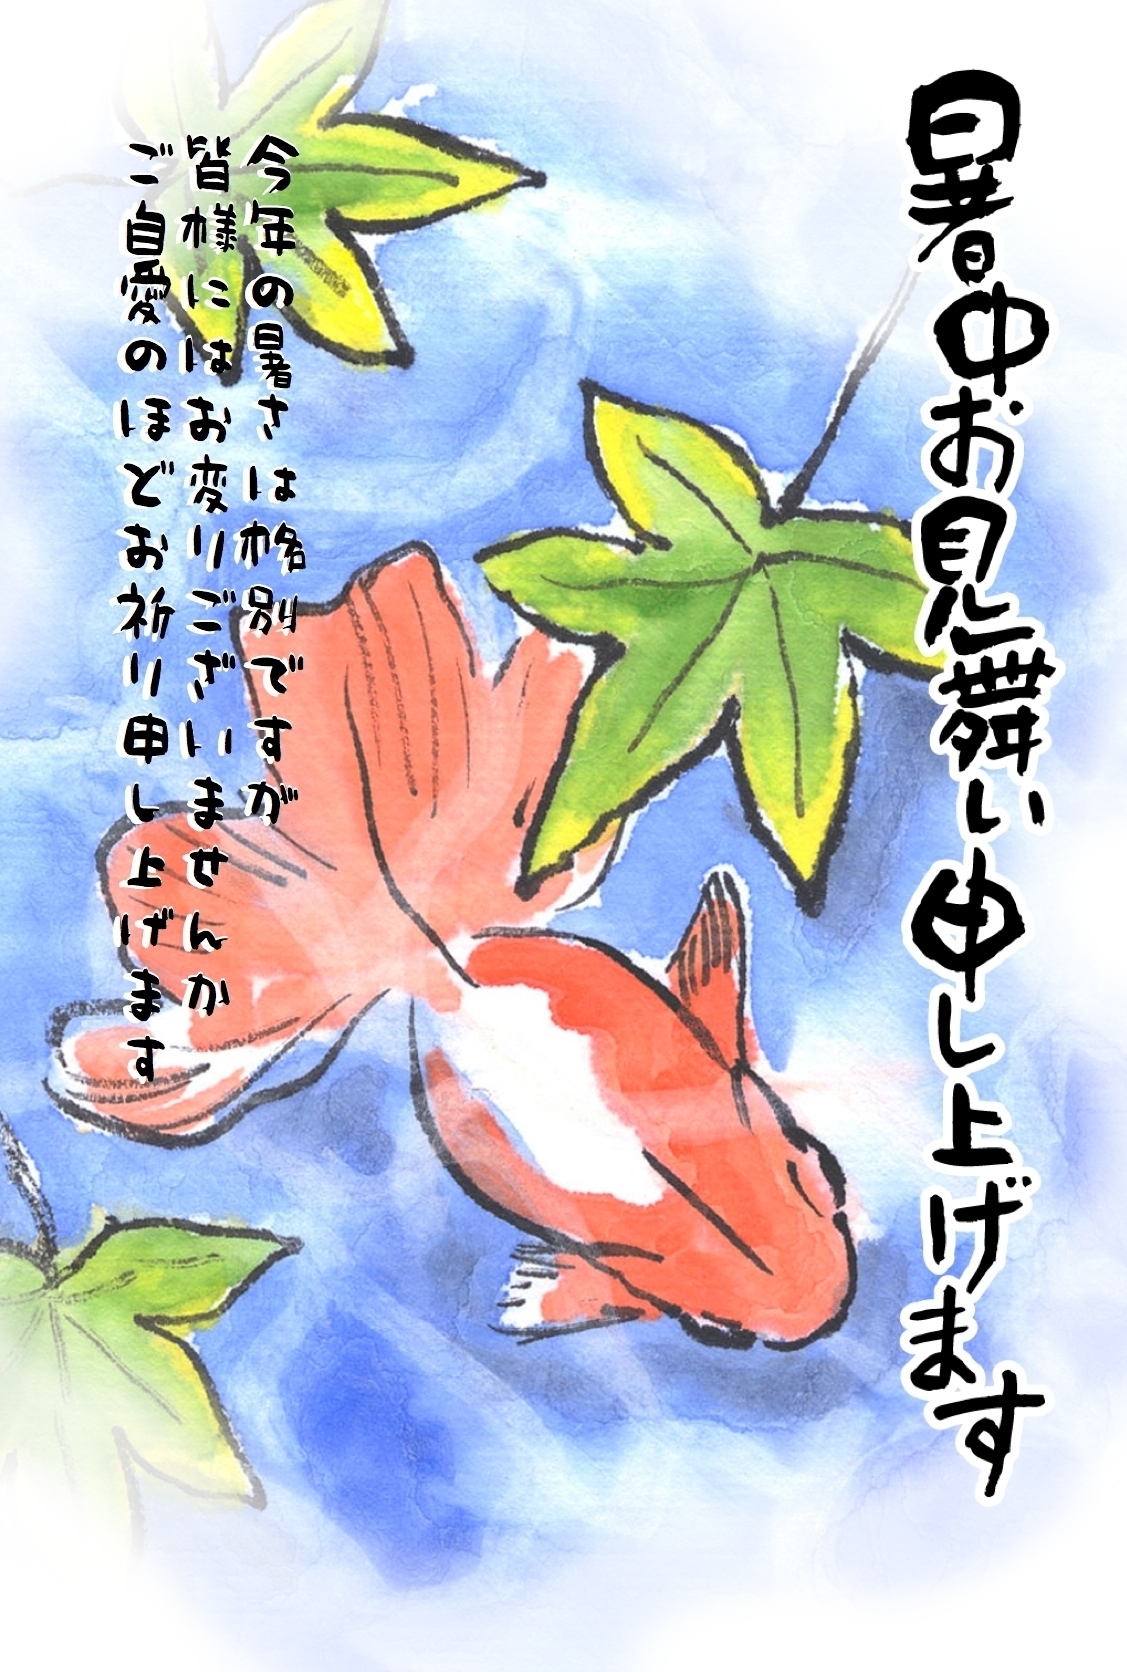 暑中お見舞い申し上げます
今年の暑さは格別ですが
皆様にはお変りございませんか
ご自愛のほどお祈り申し上げます